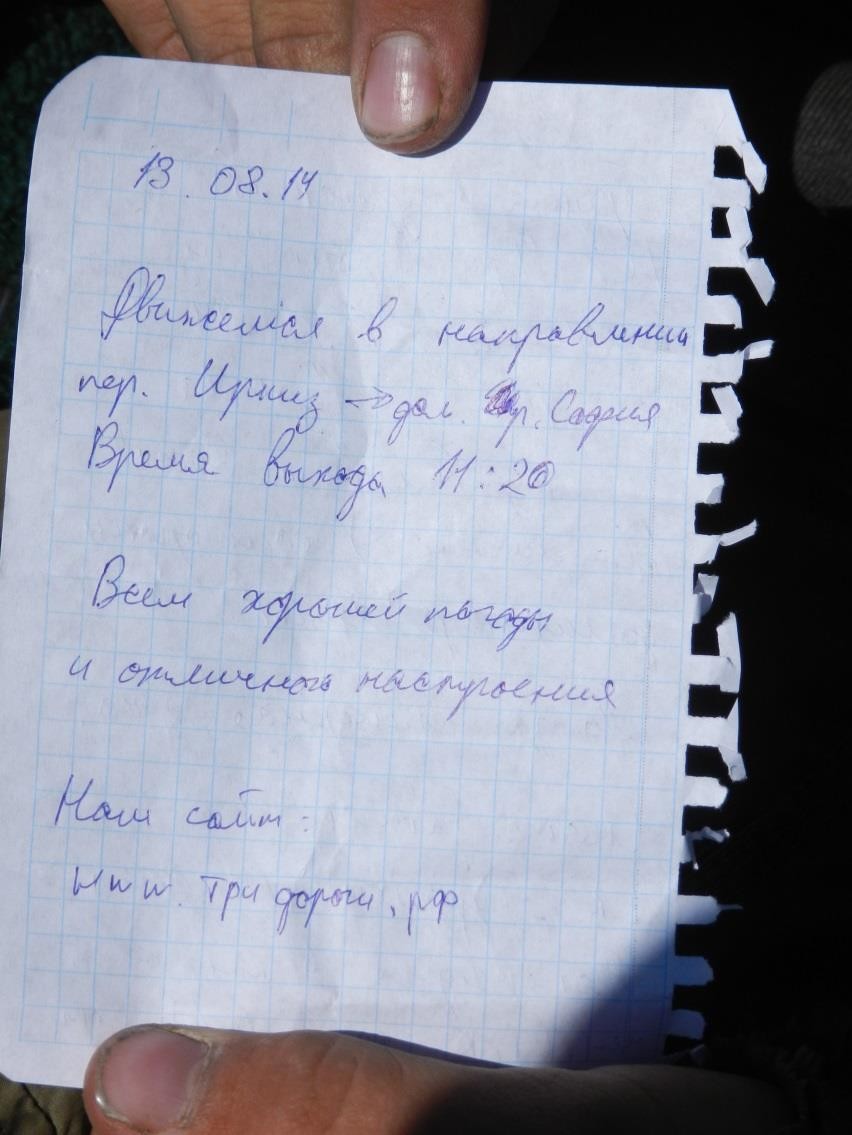 13.08.14
Движемся в направлении
пер. Иркиз → дол. р. София
Время выхода 11:20
Всем хорошей погоды
и отличного настроения
Наш сайт:
www.тридороги.рф